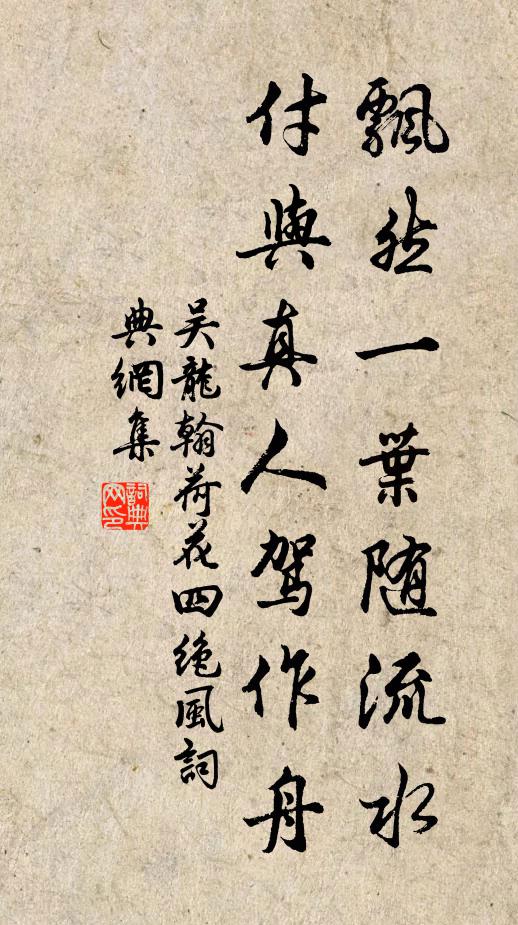 飄然一葉随流水
付與真人駕作舟
吴龍翰荷花四絶風詞
典網集
詞典
网印